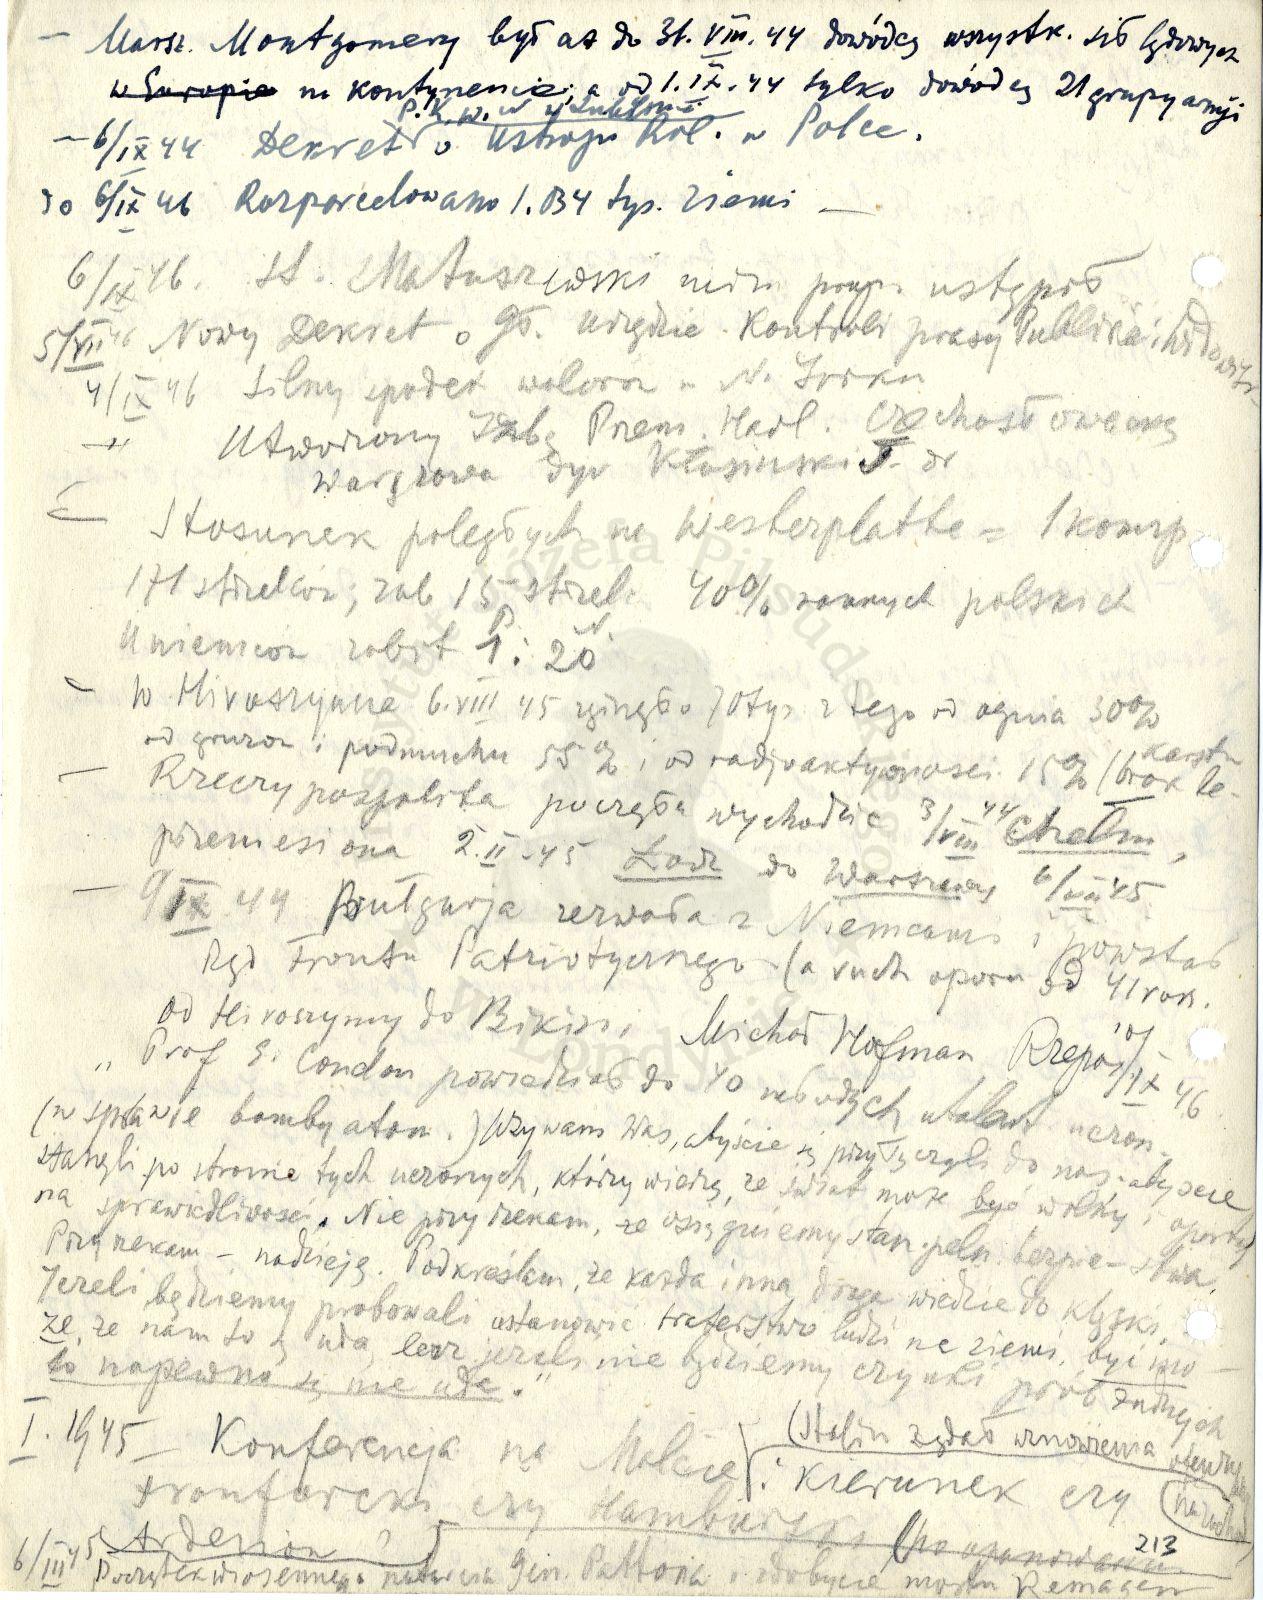 — Marsz. Montgomery był aż do 31.VIII.44 dowódcą wszystk. sił lądowych
w Europie na kontynencie, a od 1.IX.44 tylko dowódcą 21 grupy armji
P.K.W.N. z Lublina
— 6/IX 44 Dekret o Ustroju Rol. w Polce.
do 6/IX 46 Rozparcelowano 1.034 tys. ziemi —
6/IX 46. St. Matuszewski min. prop. ustąpił
5/VII 46 Nowy Dekret o Gł. Urzędzie Kontroli prasy Publikacji i Widowisk
4/IX 46 Silny spadek walorów w N. Jorku
—"— Utworzony Izbę Przem. Hadl. Czechosłowacką
Warszawa dyr Kłosiński J. dr
— Stosunek poległych na Westerplatte = 1 komp
171 strzelców; zab 15 strzel. 40% rannych polskich
U niemców zabit P. 1 : 20 N.
— W Hiroszymie 6.VIII 45 zginęło 70 tys z tego od ognia 30%
od gruzów i podmuchu 55% i od radjoaktywności 15% (brak le-
karstw
— Rzeczypospolita poczęła wychodzić 3/VIII 44 Chełm,
przeniesiona 2.II.45 Łódź do Warszawy 6/VII 45
— 9 IX 44 Bułgarja zerwała z Niemcami i powstał
Rząd Frontu Patriotycznego (a ruch oporu od 41 rok.
od Hiroszymy do Bikini, Michał Hofman Rzepos 10/IX 46.
„Prof E. Condon powiedział do 40 młodych utalent uczon.
(w sprawie bomby atom.) Wzywam Was, abyście się przyłączyli do nas. abyście
stanęli po stronie tych uczonych, którzy wierzą, że świat może być wolny i oparty
na sprawiedliwości. Nie przyrzekam, że osiągniemy stan pełn. bezpie-stwa.
Przyrzekam – nadzieję. Podkreślam, że każda inna droga wiedzie do klęski.
Jeżeli będziemy probowali ustanowić braterstwo ludzi na ziemi, być mo-
że, że nam to się uda, lecz jeżeli nie będziemy czynili prób żadnych
to napewno się nie uda."
I. 1945 — Konferencja na Malcie (Stalin żądał wznowienia ofenzywy
na zachod.
i kierunek czy
Frankfurcki czy Hamburski (po opanowaniu
Arderion ?
213
6/III 45 Początek wiosennego natarcia gen. Pattona i zdobycie mostu Remagen
Instytut Józefa Piłsudskiego w Londynie